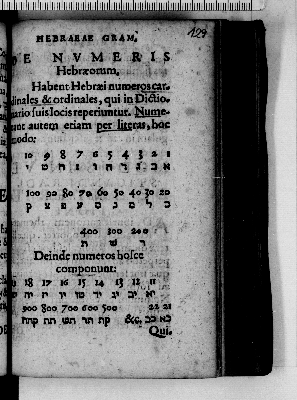 HEBRAEAE GRAM. 129
DE NVMERIS
Hebræorum.
Habent Hebræi numeros car-
dinales & ordinales, qui in Dictio-
nario suis locis reperiuntur. Nume-
rant autem etiam per literas, hoc
modo:
10 9 8 7 6 5 4 3 2 1
י ט ח ז ו ה ד ג ב א
100 90 80 70 60 50 40 30 20
ק צ פ ע ס נ מ ל כ
400 300 200
ת ש ר
Deinde numeros hosce
componunt:
18 17 16 15 14 13 12 11
יח יז יו טו יד יג יב יא
900 800 700 600 500 22 21
תתק תת תש תר תק &c. כב כא
Qui.